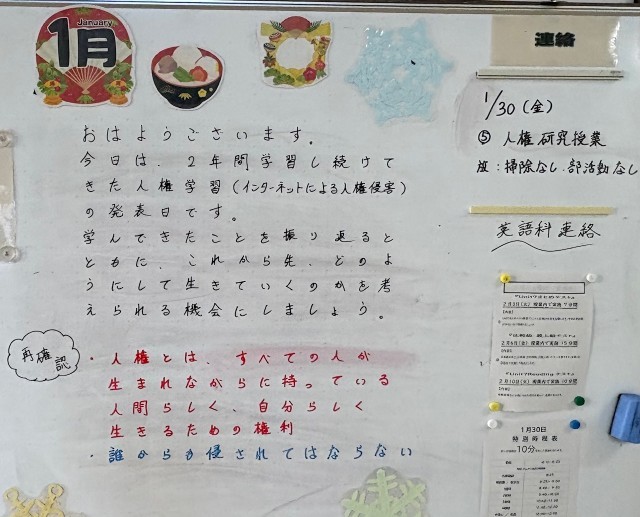 January
1月
おはようございます。
今日は、2年間学習し続けて
きた人権学習(インターネットによる人権侵害)
の発表日です。
学んできたことを振り返ると
ともに、これから先、どのよ
うにして生きていくのかを考
えられる機会にしましょう。
再確認
・人権とは、すべての人が
生まれながらに持っている
人間らしく、自分らしく
生きるための権利
・誰からか侵されてはならない
連絡
1/30(金)
⑤ 人権研究授業
放:掃除なし、部活動なし
英語科連絡
1月30日
特別時程表
10分